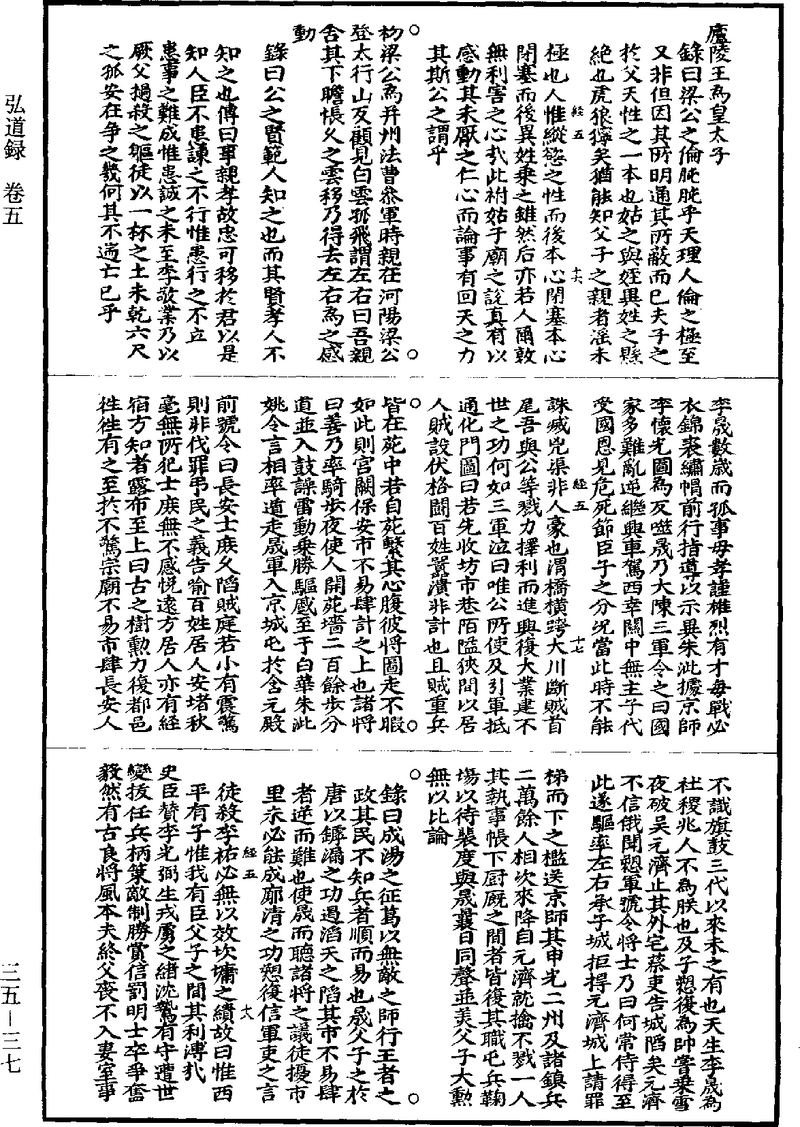 弘道録 卷五
三五—三七
廬陵王為皇太子
錄曰梁公之倫肫肫乎天理人倫之極至
又非但因其所明通其所蔽而已夫子之
於父天性之一本也姑之與姪異姓之懸
絶也虎狼獰矣猶能知父子之親者淫未
經五 十六
極也人惟縱慾之性而後本心閉塞本心
閉塞而後異姓乘之雖然后亦若人爾敦
無利害之心哉此祔姑于廟之說真有以
感動其未厭之仁心而論事有回天之力
其斯公之謂乎
○ ○
初梁公為并州法曹叅軍時親在河陽梁公
登太行山反顧見白雲孤飛謂左右曰吾親
舍其下瞻悵久之雲移乃得去左右為之感
動
錄曰公之賢範人知之也而其賢孝人不
知之也傳曰事親孝故忠可移於君以是
知人臣不患諫之不行惟患行之不立
患事之難成惟患誠之未至李敬業乃以
厥父撾殺之軀徒以一杯之土未乾六尺
之孤安在爭之幾何其不淪亡已乎
李晟數歲而孤事母孝謹雄烈有才每戰必
衣錦裘繡帽前行指導以示異朱泚據京師
李懷光圖為反噬晟乃大陳三軍令之曰國
家多難亂逆繼興車駕西幸關中無主子代
受國恩見危死節臣子之分况當此時不能
經五 十七
誅滅兇渠非人豪也渭橋横跨大川斷賊首
尾吾與公等戮力擇利而進興復大業建不
世之功何如三軍泣曰唯公所使及引軍抵
通化門圖曰若先收坊市巷陌隘狹間以居
人賊設伏格鬪百姓囂潰非計也且賊重兵
○ ○
皆在苑中若自苑繫其心腹彼將圖走不暇
如此則宮闕保安市不易肆計之上也諸將
曰善乃率騎步夜使人開苑墻二百餘步分
道並入鼓譟雷動乘勝驅蹙至于白華朱泚
姚令言相率遁走晟軍入京城屯於含元殿
前號令曰長安士庶久陷賊庭若小有震驚
則非伐罪弔民之義告喻百姓居人安堵秋
毫無所犯士庶無不感悦遠方居人亦有經
宿方知者露布至上曰古之樹勲力復都邑
徃徃有之至於不驚宗廟不易市肆長安人
不識旗鼓三代以來未之有也天生李晟為
社稷兆人不為朕也及子愬復為帥嘗乘雪
夜破吴元濟止其外宅蔡吏告城陷矣元濟
不信俄聞愬軍號令將士乃曰何常侍得至
此遂驅率左右乘子城拒捍元濟城上請罪
梯而下之檻送京師其申光二州及諸鎮兵
二萬餘人相次來降自元濟就擒不戮一人
其執事帳下厨厩之間者皆復其職屯兵鞠
塲以待裴度與晟曩日同聲並美父子大勲
無以比論
○ ○
錄曰成湯之征葛以無敵之師行王者之
政其民不知兵者順而易也晟父子之於
唐以鏬漏之功遏滔天之陷其市不易肆
者逆而難也使晟而聽諸將之議徒擾市
里未必能成廓清之功愬復信軍吏之言
經五 十八
徒殺李祐必無以效坎墉之績故曰惟西
平有子惟我有臣父子之間其利溥哉
史臣贊李光弼生戎虜之緒沈鷙有守遭世
變拔任兵柄策敵制勝賞信罰明士卒爭奮
毅然有古良將風本夫終父喪不入妻室事